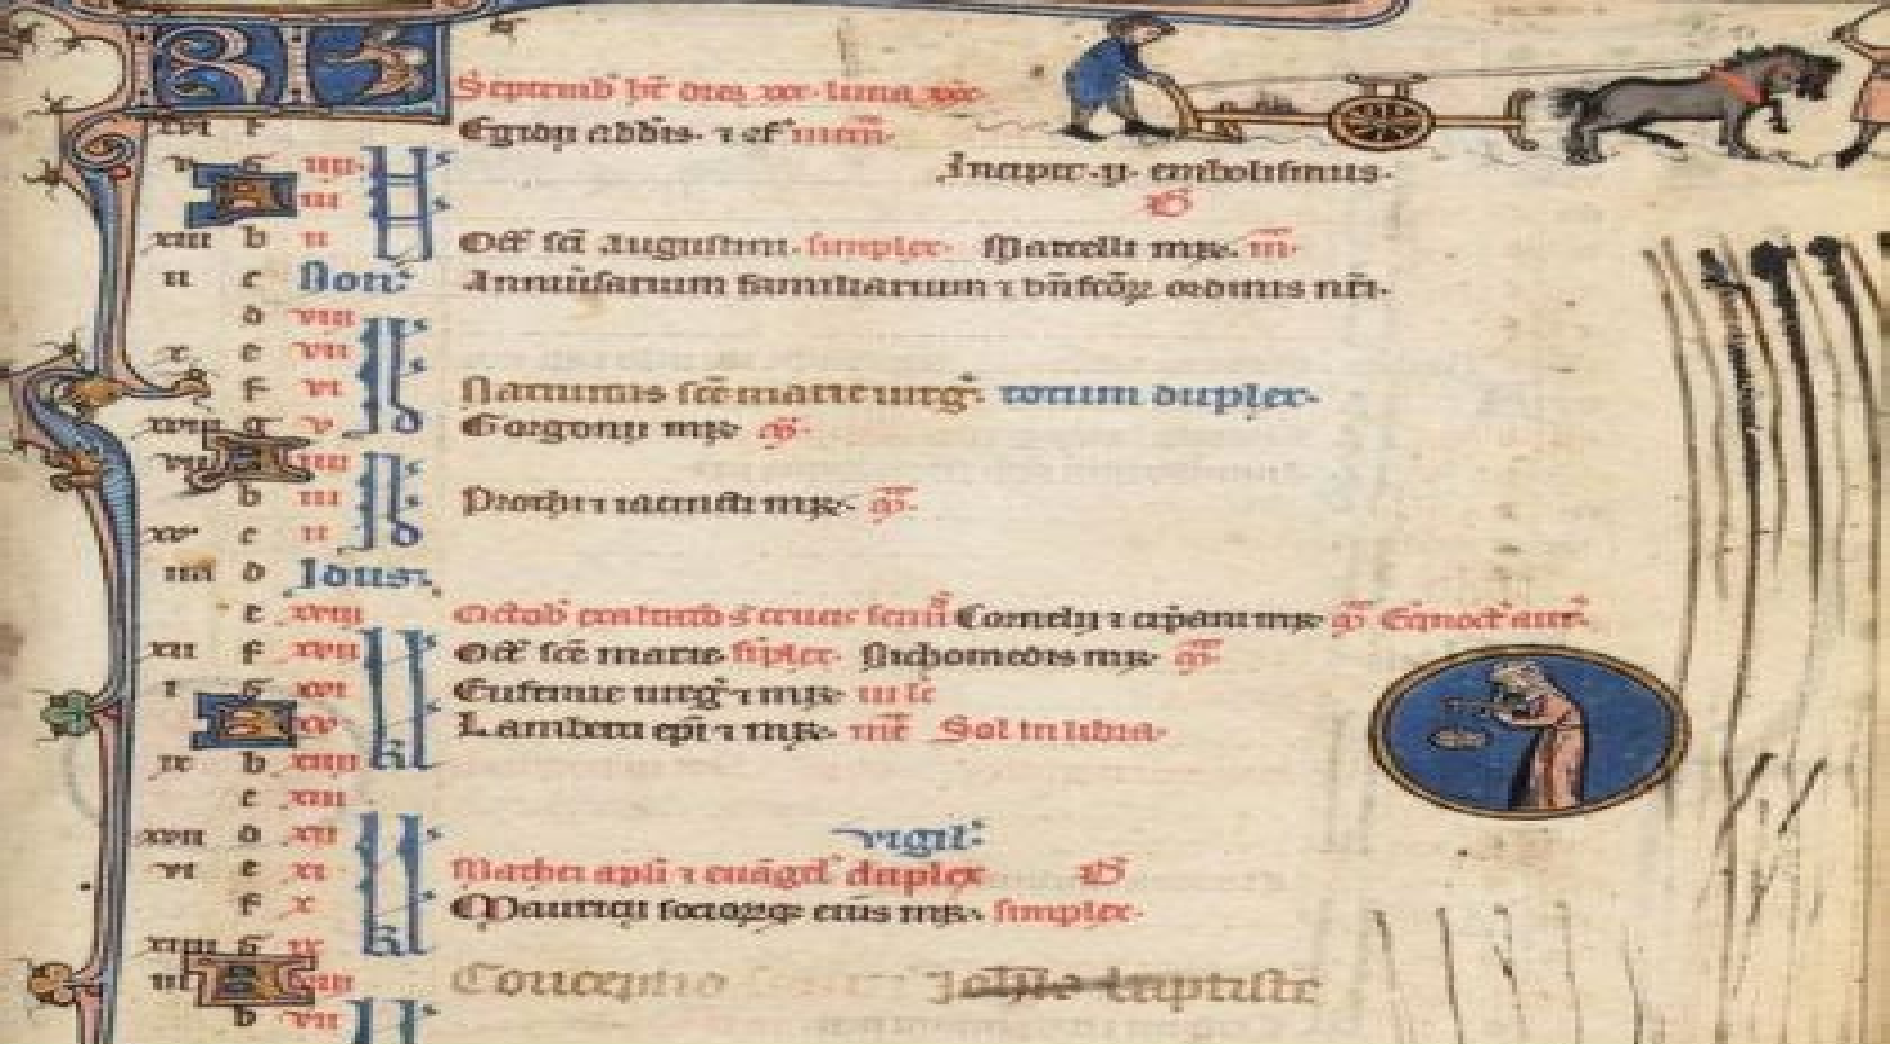 KL Septemb' ht dies xxx. luna xxx.
xvi f Egidij abbis. ⁊ cf mem.
v G iiii. N Incipit. ij. embolismus.
A iii
xiii b ii Oct sci Augustini. simplex. Marcelli mr. m.
ii c Non. Anniuersarium familiarium ⁊ bnfcor ordinis nri.
d viii Id
x e vii
f vi Natiuitas sce marie uirg. totum duplex.
xviii g v Gorgonij mr
vii A iiii Id
b iii Prothi ⁊ iacincti mr.
xv c ii
iiii d Idus.
e xviii Octob' Cornelij ⁊ cipriani mr Eqnoct' aut.
xii f xvii kl Oct sce marie. siplex. Nichomedis mr.
i G xvi Eufemie uirg. ⁊ mr.
A xv Lamberti epi. ⁊ mr. Sol in libra.
ix b xiiii
c xiii
xvii d xii kl vigil'.
vi e xi Mathei apli ⁊ euagel' duplex
f x Mauricij sociorq eius mr. simplex.
xiiii G ix
iii A viii Conceptio baptiste
b vii